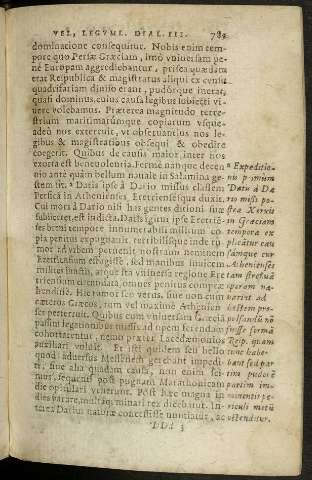 VEL, LEGVM. DIAL. III. 789
dominatione consequitur. Nobis enim tem-
pore quo Persæ Græciam, imò vniuersam pe-
nè Europam aggrediebantur, prisca quædam
erat Reipublica & magistratus aliqui ex censu
quadrifariam diuiso erant, pudórque inerat,
quasi dominus, cuius causa legibus subiecti vi-
uere volebamus. Præterea magnitudo terre-
strium maritimarúmque copiarum vsque-
adeò nos exterruit, vt obseruantius nos le-
gibus & magistratibus obsequi & obedire
coegerit. Quibus de causis maior inter nos
exorta est beneuolentia. Fermè nanque decen-
nio ante quàm bellum nauale in Salamina ge-
stem sit. Datis ipse à Dario missus classem
Persica in Athenienses, Eretriensésque duxit.
Cui mors à Dario nisi has gentes ditioni suæ
subiiceret, est indicta. Datis igitur ipse Eretrien-
ses breui tempore innumerabili militum co-
pia penitus expugnauit, terribilísque inde ru-
mor ad vrbem peruenit nostram neminem
Eretrensium effugisse, sed manibus inuicem
milites iunctis, atque ita vniuersa regione Ere-
triensium circundata, omnes penitus compræ-
hendisse. Hic rumor seu verus, siue non cum
cæteros Græcos, tum vel maximè Athenien-
ses perterruit. Quibus cum vniuersam Græciã
passim legationibus missis ad opem ferendam
cohortarentur, nemo præter Lacedæmonios
auxiliari voluit. Et isti quidem seu bello
quod aduersus Messenem gerebant impedi-
ti, siue alia quadam causa, non enim sci-
mus, sequenti post pugnam Marathonicam
die opitulari venerunt. Post hæc magna in-
dies varæque, multæque minari rex dicebatur. In-
terea Darius naturæ concessisse nuntiatur, ac
DDd 3
* Expeditio-
nis primùm
Datis à Da-
rio missi po-
stea Xerxis
in Græciam
tempora ex
plicãtur cau
sámque cur
Athenienses
tam strenuè
operam na-
uarint ad
hostem pro-
pulsandũ nõ
fuisse formã
Reip. quam
tunc habe-
bant sed par
tim pudorẽ
partim im-
minentis pe-
riculi metũ
ostenditur.